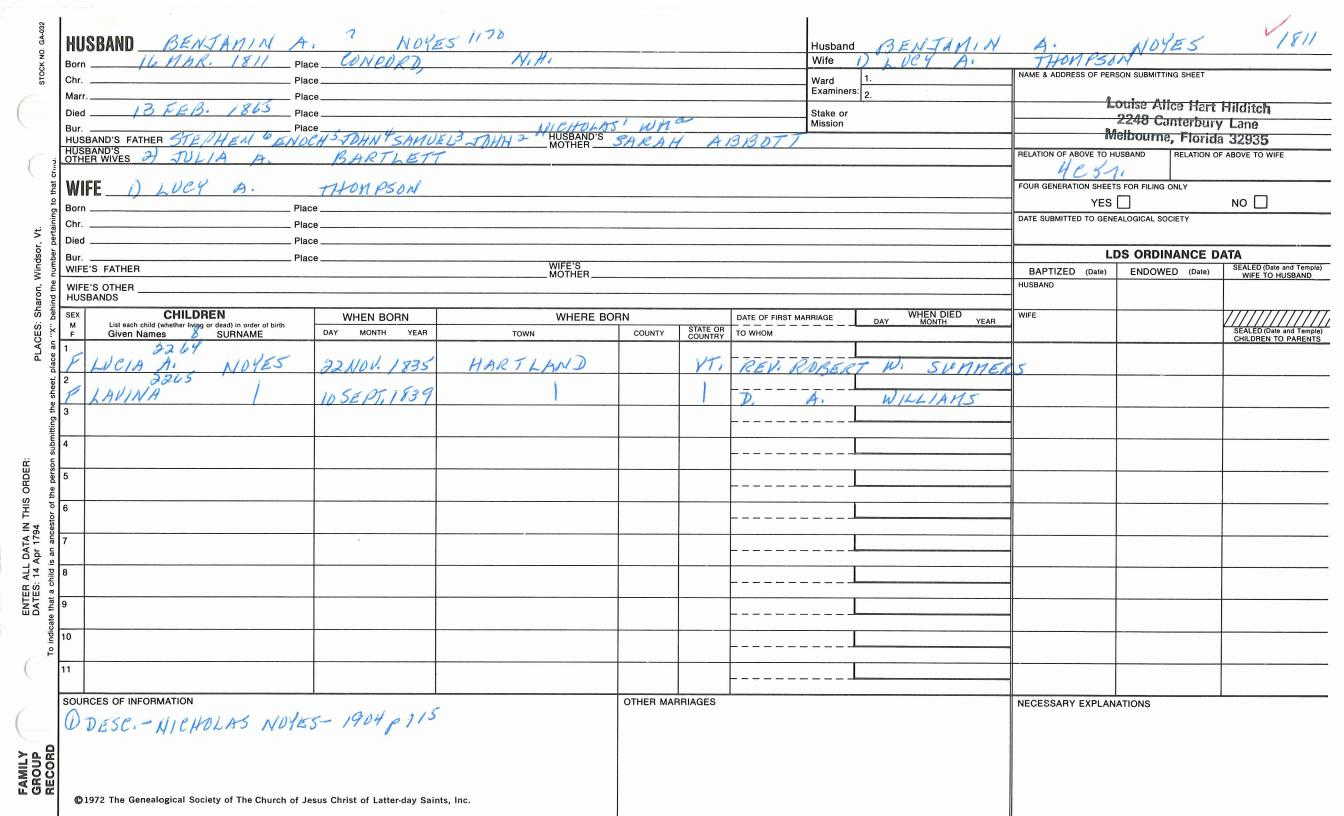 STOCK NO. GA-032
HUSBAND BENJAMIN A. 7 NOYES 1170
Born 16 MAR. 1811 Place CONCORD, N.H.
Chr. Place
Marr. Place
Died 13 FEB. 1865 Place
Bur. Place NICHOLAS1 WMa
HUSBAND'S FATHER STEPHEN6 ENOCH5 JOHN4 SAMUEL3 JOHN2 HUSBAND'S MOTHER SARAH ABBOTT
HUSBAND'S OTHER WIVES 2) JULIA A. BARTLETT
WIFE 1) LUCY A. THOMPSON
Born Place
Chr. Place
Died Place
Bur. Place
WIFE'S FATHER WIFE'S MOTHER
WIFE'S OTHER HUSBANDS
Husband BENJAMIN A. NOYES 1811
Wife 1) LUCY A. THOMPSON
Ward Examiners: 1.
2.
Stake or Mission
NAME & ADDRESS OF PERSON SUBMITTING SHEET
Louise Alice Hart Hilditch
2248 Canterbury Lane
Melbourne, Florida 32935
RELATION OF ABOVE TO HUSBAND RELATION OF ABOVE TO WIFE
FOUR GENERATION SHEETS FOR FILING ONLY
YES NO
DATE SUBMITTED TO GENEALOGICAL SOCIETY
LDS ORDINANCE DATA
BAPTIZED (Date) ENDOWED (Date) SEALED (Date and Temple) WIFE TO HUSBAND
HUSBAND
WIFE
SEALED (Date and Temple) CHILDREN TO PARENTS
SEX M F CHILDREN WHEN BORN WHERE BORN DATE OF FIRST MARRIAGE WHEN DIED
List each child (whether living or dead) in order of birth
Given Names 8 SURNAME DAY MONTH YEAR TOWN COUNTY STATE OR COUNTRY TO WHOM DAY MONTH YEAR
2264
1 F LUCIA A. NOYES 22 NOV. 1835 HARTLAND VT. REV. ROBERT W. SUMMERS
2265
2 F LAVINA | 10 SEPT. 1839 | | D. A. WILLIAMS
3
4
5
6
7
8
9
10
11
SOURCES OF INFORMATION OTHER MARRIAGES NECESSARY EXPLANATIONS
① DESC. - NICHOLAS NOYES - 1904 p 115
©1972 The Genealogical Society of The Church of Jesus Christ of Latter-day Saints, Inc.
PLACES: Sharon, Windsor, Vt.
To indicate that a child is an ancestor of the person submitting the sheet, place an "X" behind the number pertaining to that child.
ENTER ALL DATA IN THIS ORDER:
DATES: 14 Apr 1794
FAMILY GROUP RECORD